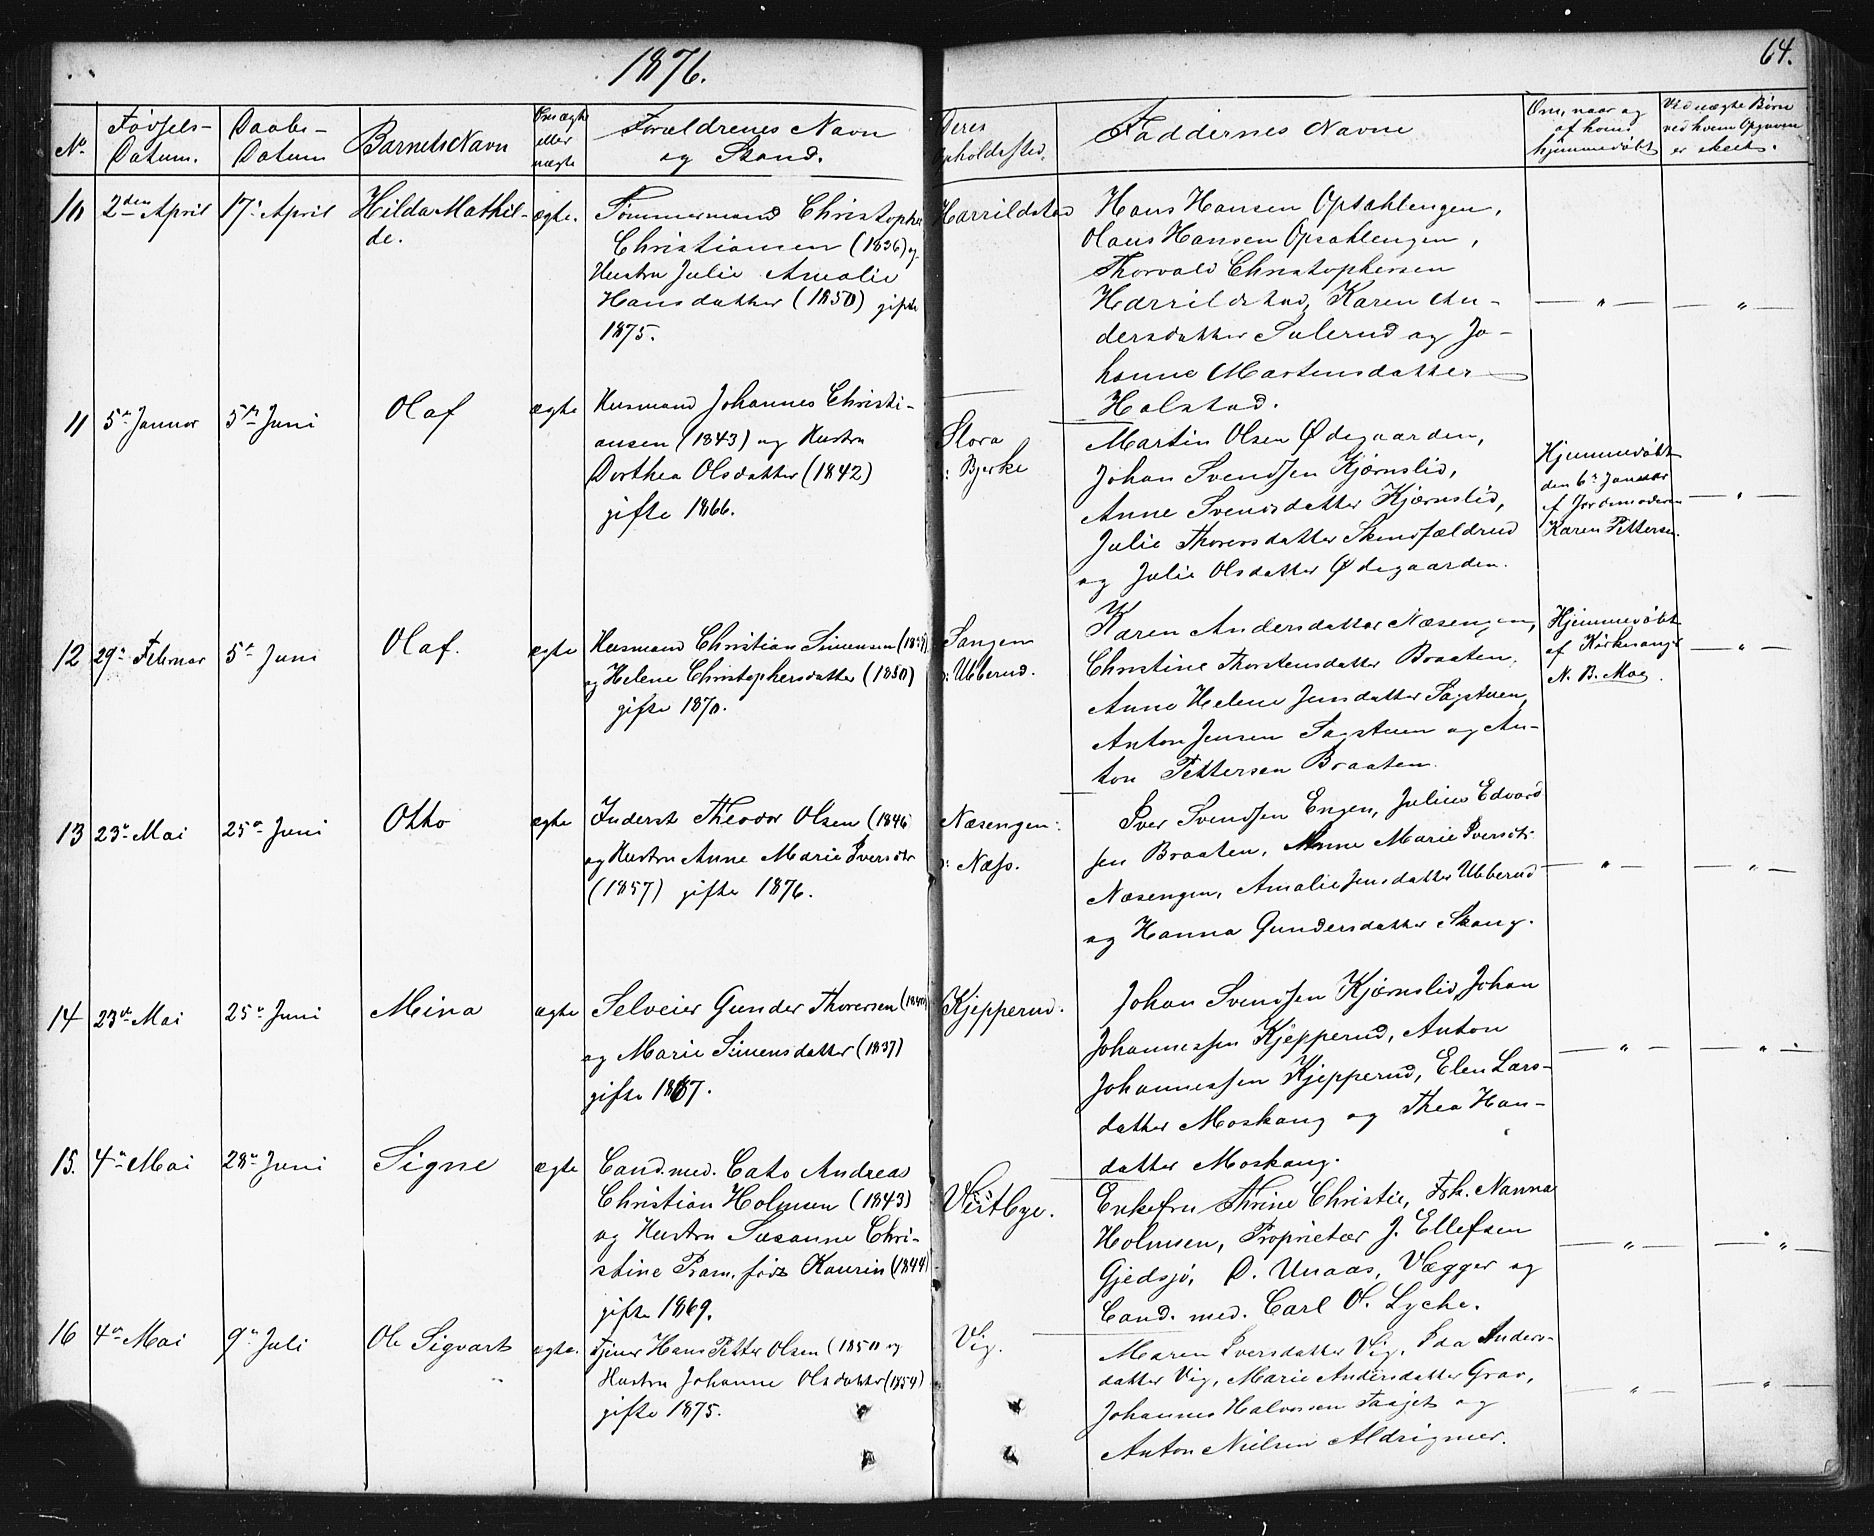 1876.
64.
No.
Fødsels-
Datum.
Daabs-
Datum
Barnets Navn
Om ægte
eller
uægte
Forældrenes Navn
og Stand.
Deres
Opholdssted.
Faddernes Navne
Om, naar og
af hvem
hjemmedøbt
Ved uægte Børn
ved hvem Opgaven
er skeet.
10
2den April
17. April
Hilda Mathil-
de.
ægte.
Tømmermand Christopher
Christiansen (1836) og
Hustru Julie Amalie
Hansdatter (1850) gifte
1875.
Harrildstad
Hans Hansen Opsahlengen,
Olaus Hansen Opsahlengen,
Thorvald Christophersen
Harrildstad, Karen An-
dersdatter Sulerud og Jo-
hanne Martensdatter
Holstad.
— " —
— " —
11
5te Januar
5te Juni
Olaf
ægte
Husmand Johannes Christi-
ansen (1843) og Hustru
Dorthea Olsdatter (1842)
gifte 1866.
Slora
: Bjerke
Martin Olsen Ødegaarden,
Johan Svendsen Kjærnslid,
Anne Svendsdatter Kjærnslid,
Julie Thoresdatter
og Julie Olsdatter Ødegaarden.
Hjemmedøbt
den 6te Januar
af Jordemoderen
Karen Pettersen.
— " —
12
29de Februar
5te Juni
Olaf.
ægte
Husmand Christian Simensen
og Helene Christophersdatter (1850)
gifte 1870.
Sangen
: Ubberud.
Karen Andersdatter Næsengen,
Christine Thorstensdatter Braaten,
Anne Helene Jensdatter Sagstuen,
Anton Jensen Sagstuen og An-
ton Pettersen Braaten.
Hjemmedøbt
af Kirkesanger
N. B. Moe.
— " —
13
23de Mai
25de Juni
Otto
ægte
Inderst Theodor Olsen (1846
og Hustru Anne Marie Iversdtr
(1857) gifte 1876.
Næsengen:
: Næss.
Iver Svendsen Engen, Julius Edvard
sen Braaten, Anne Marie Iversdtr
Næsengen, Amalie Jensdatter Ubberud
og Hanna Gundersdatter Skaug.
— " —
— " —
14
23de Mai
25de Juni
Mina
ægte
Selveier Gunder Thoresen
og Marie Simensdatter (1837)
gifte 1867.
Kjepperud.
Johan Svendsen Kjærnslid, Johan
Johannessen Kjepperud, Anton
Johannessen Kjepperud, Elen Lars-
datter Moskaug og Thea Han-
datter Moskaug.
— " —
— " —
15.
4de Mai
28de Juni
Signe
ægte
Cand. med. Cato Andreas
Christian Holmsen (1843)
og Hustru Susanne Chri-
stine Pram, født Kaurin (1844)
gifte 1869.
Vestbye.
Enkefru Thrine Christie, Frk. Nanna
Holmsen, Proprietær J. Ellefsen
Gjedsjø, O. Unaas, Vægger og
Cand. med. Carl O. Lyche.
— " —
— " —
16
4de Mai
9de Juli
Ole Sigvart
ægte.
Tjener Hans Petter Olsen (1850 og
Hustru Johanne Olsdatter (1854)
gifte 1875.
Vig.
Maren Iversdatter Vig, Ida Anders-
datter Vig, Marie Andersdatter Grav,
Johannes Halvorsen Taajet og
Anton Nielsen Aldrigmer.
— " —
— " —